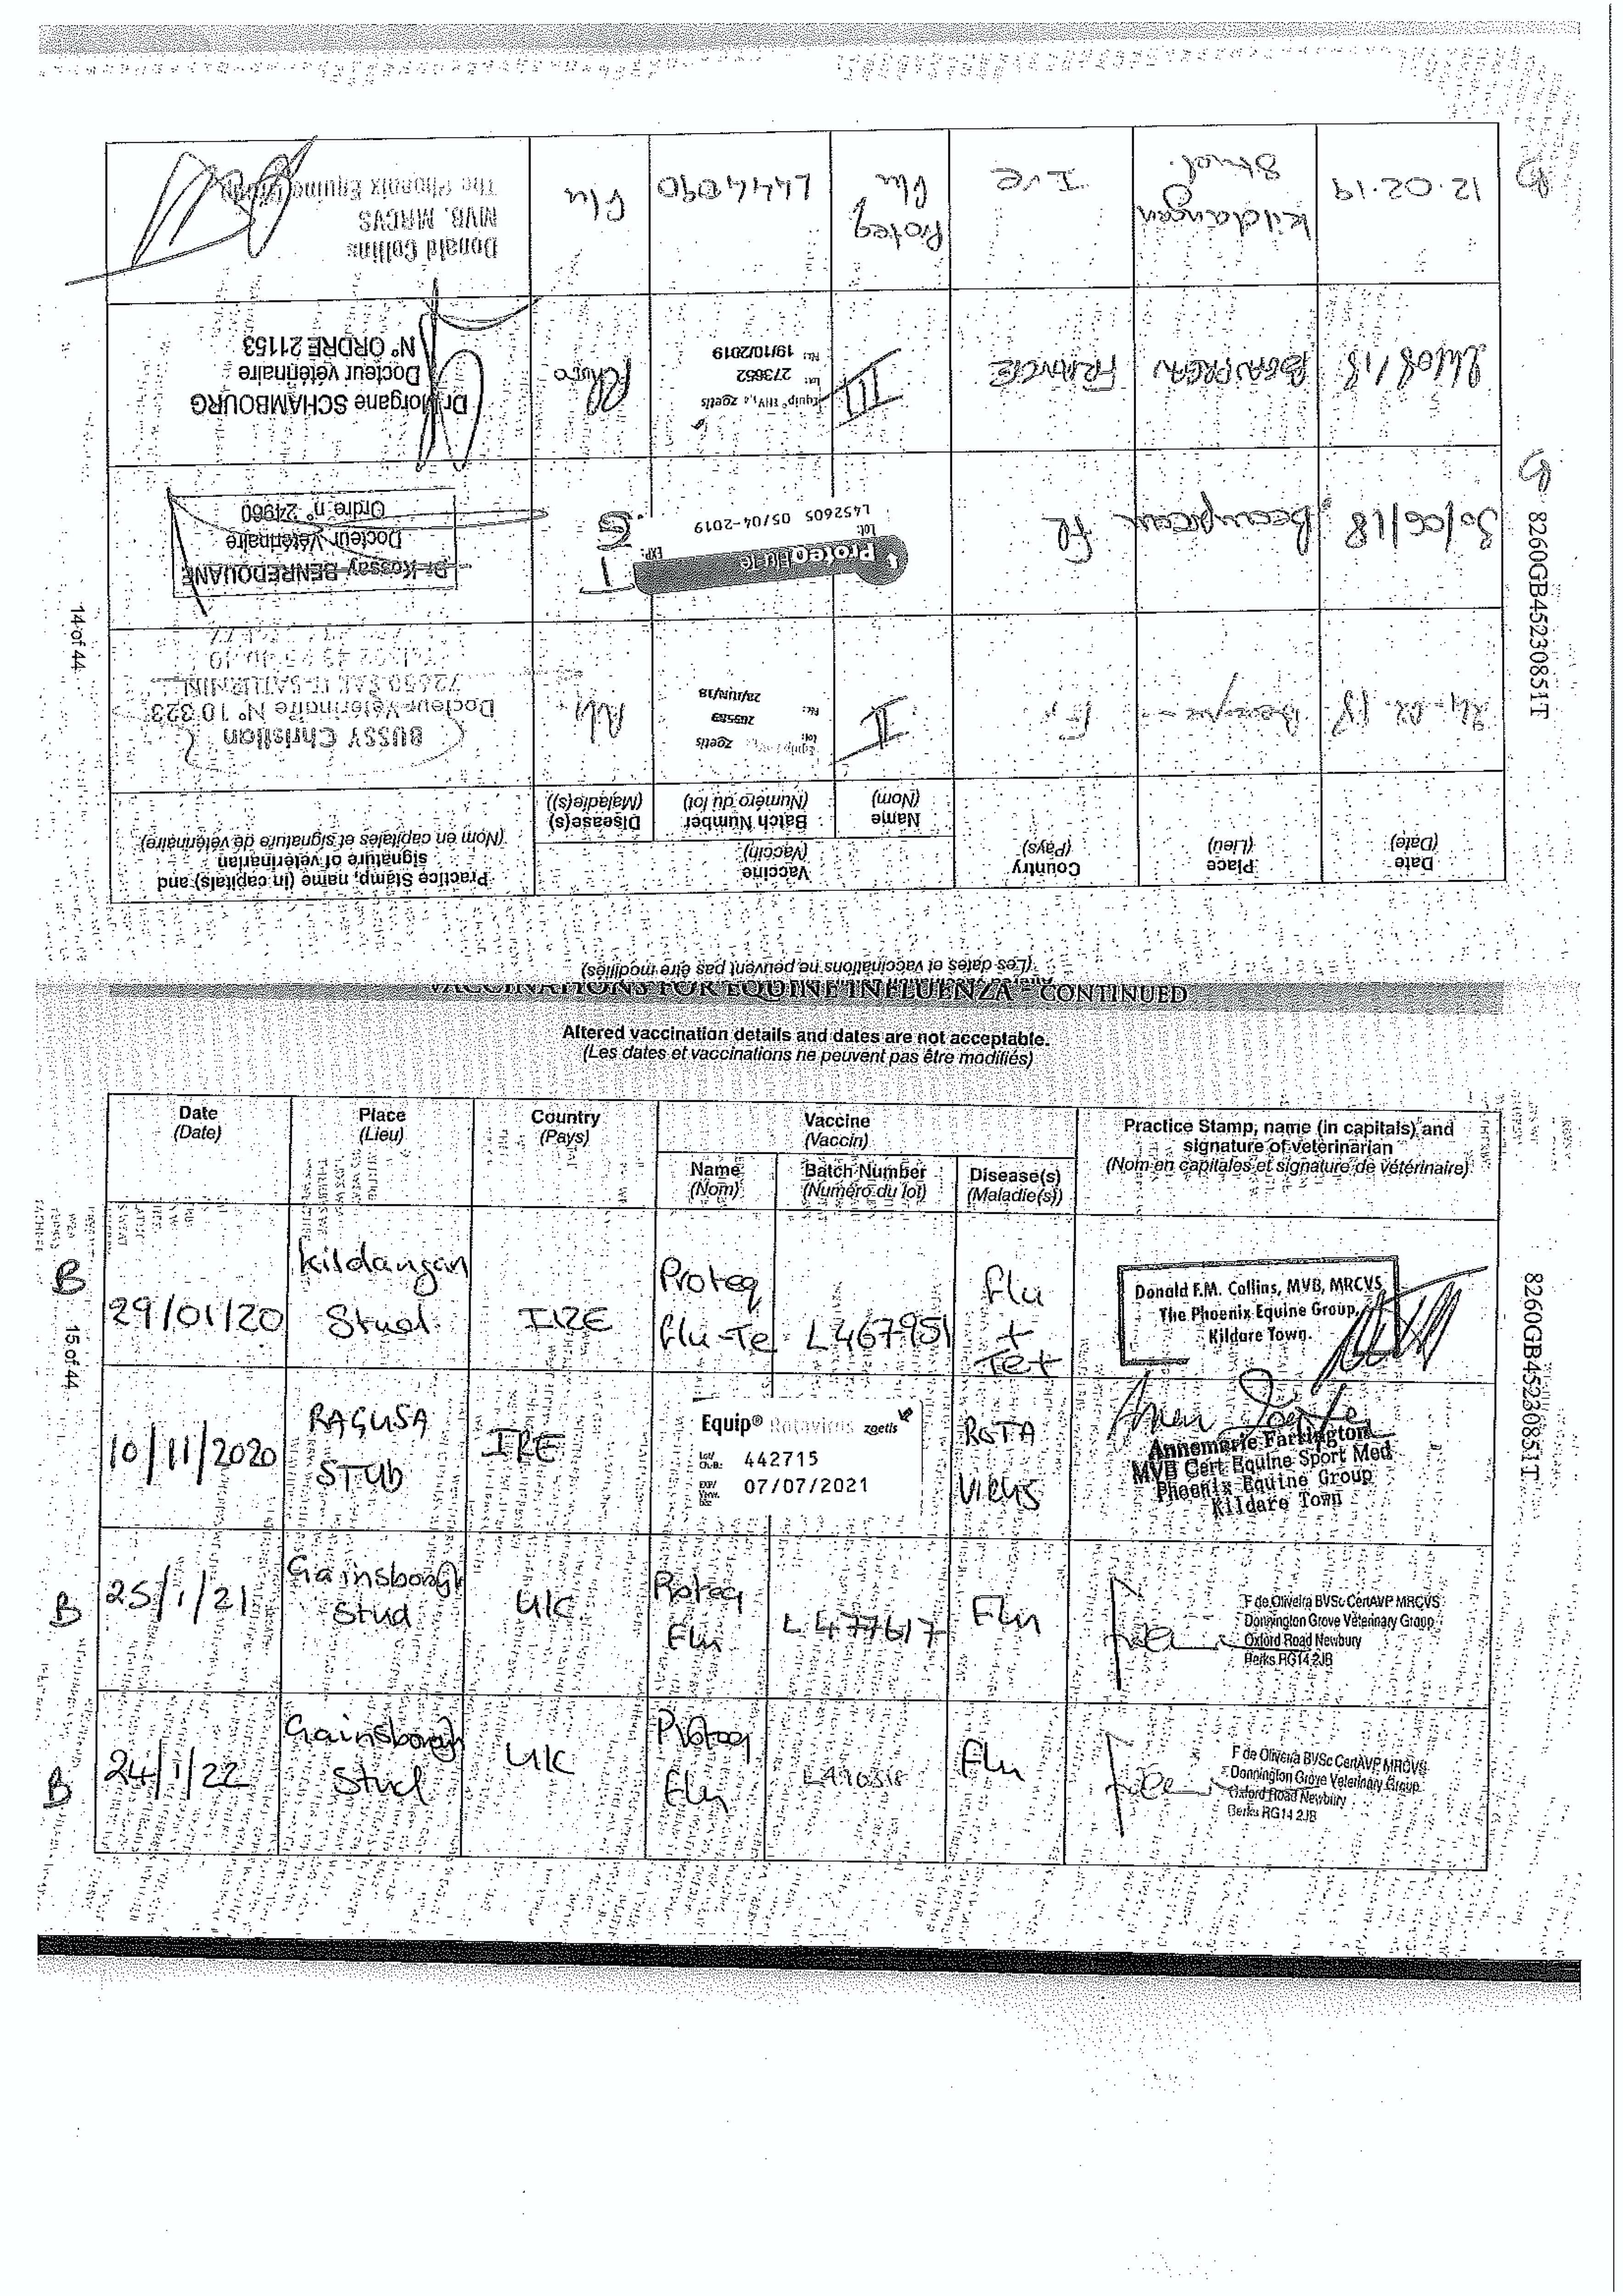 14 of 44
8260GB45230851T
(Les dates et vaccinations ne peuvent pas être modifiés)
Date
(Date)
Place
(Lieu)
Country
(Pays)
Vaccine
(Vaccin)
Name
(Nom)
Batch Number
(Numéro du lot)
Disease(s)
(Maladie(s))
Practice Stamp, name (in capitals) and
signature of veterinarian
(Nom en capitales et signature de vétérinaire)
II
zoetis
Lot:
265583
28/JUN/18
BUSSY Christian
Docteur Vétérinaire N° 10 323
30/06/18
Fr
ProteqFlu-Te
Lot:
EXP:
L452605 05/04-2019
Dr Kossay BENREDOUANE
Docteur Vétérinaire
Ordre n° 24960
FRANCE
III
Equip® EHV1,4 zoetis
Lot:
273652
19/10/2019
Dr Morgane SCHAMBOURG
Docteur vétérinaire
N° ORDRE 21153
12.02.19
Kildangan
Stud.
Ire
Proteq
Flu
L444090
Flu
Donald Collins
MVB, MRCVS
The Phoenix Equine Group
VACCINATIONS FOR EQUINE INFLUENZA - CONTINUED
Altered vaccination details and dates are not acceptable.
(Les dates et vaccinations ne peuvent pas être modifiés)
Date
(Date)
Place
(Lieu)
Country
(Pays)
Vaccine
(Vaccin)
Name
(Nom)
Batch Number
(Numéro du lot)
Disease(s)
(Maladie(s))
Practice Stamp, name (in capitals) and
signature of veterinarian
(Nom en capitales et signature de vétérinaire)
B
29/01/20
Kildangan
Stud.
IRE
Proteq
Flu-Te
L467951
Flu
+
Tet
Donald F.M. Collins, MVB, MRCVS
The Phoenix Equine Group,
Kildare Town.
10/11/2020
RAGUSA
STUD
IRE
Equip® Rotavirus zoetis
442715
07/07/2021
ROTA
VIRUS
Annemarie Farrington
MVB Cert Equine Sport Med
Phoenix Equine Group
Kildare Town
B
25/1/21
Gainsborogh
Stud
UK
Proteq
Flu
L477617
Flu
F de Oliveira BVSc CertAVP MRCVS
Donnington Grove Veterinary Group
Oxford Road Newbury
Berks RG14 2JB
B
24/1/22
Gainsborogh
Stud
UK
Proteq
Flu
Flu
F de Oliveira BVSc CertAVP MRCVS
Donnington Grove Veterinary Group
Oxford Road Newbury
Berks RG14 2JB
15 of 44
8260GB45230851T